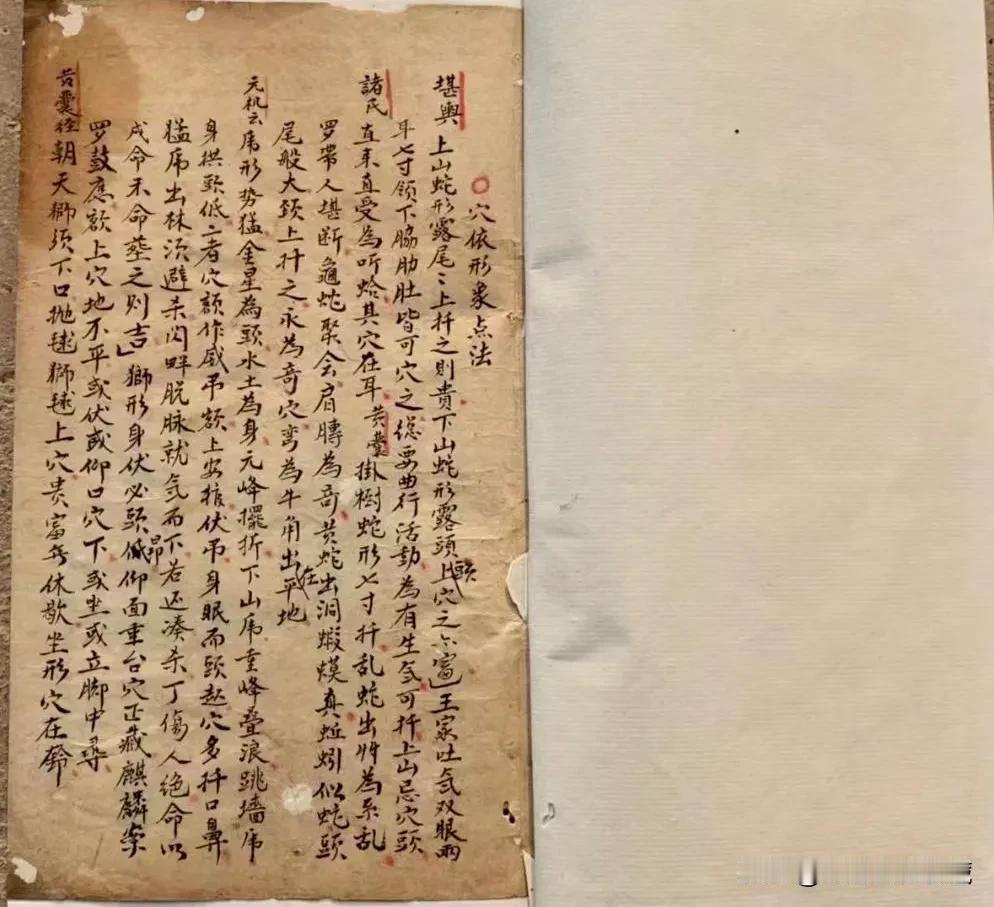 ○穴依形象点法
堪輿 上山蛇形露尾〻上扦之則貴下山蛇形露頭上頭穴之亦富」王家吐气双眼兩
耳七寸領下脇肋肚皆可穴之總要曲行活動為有生气可扦上山忌穴頭
諸氏 直来直受為听蛤其穴在耳 黄囊 掛樹蛇形七寸扦乱蛇出时為系乱
罗带人堪断龜蛇聚会肩膊為奇黄蛇出洞蝦蟆真蚯蚓似蛇頭
尾般大頚上扦之永為奇穴弯為牛角出在平地
元机云 虎形势猛金星為頭水土為身元峰擺折下山虎重峰叠浪跳墙虎
身拱頭低二者穴額作威吊額上安摈伏吊身眠而頭起穴多扦口鼻
猛虎出林须避杀闪畔脱脉就气而下若还凑杀丁傷人绝命以
戌命未命塟之则吉」獅形身伏必頭低昂仰面重台穴正藏麒麟崇
罗鼓應額上穴地不平或伏或仰口穴下或坐或立脚中尋
黄囊经 朝天獅须下口抛毬獅毬上穴贵富無休歇坐形穴在鈴